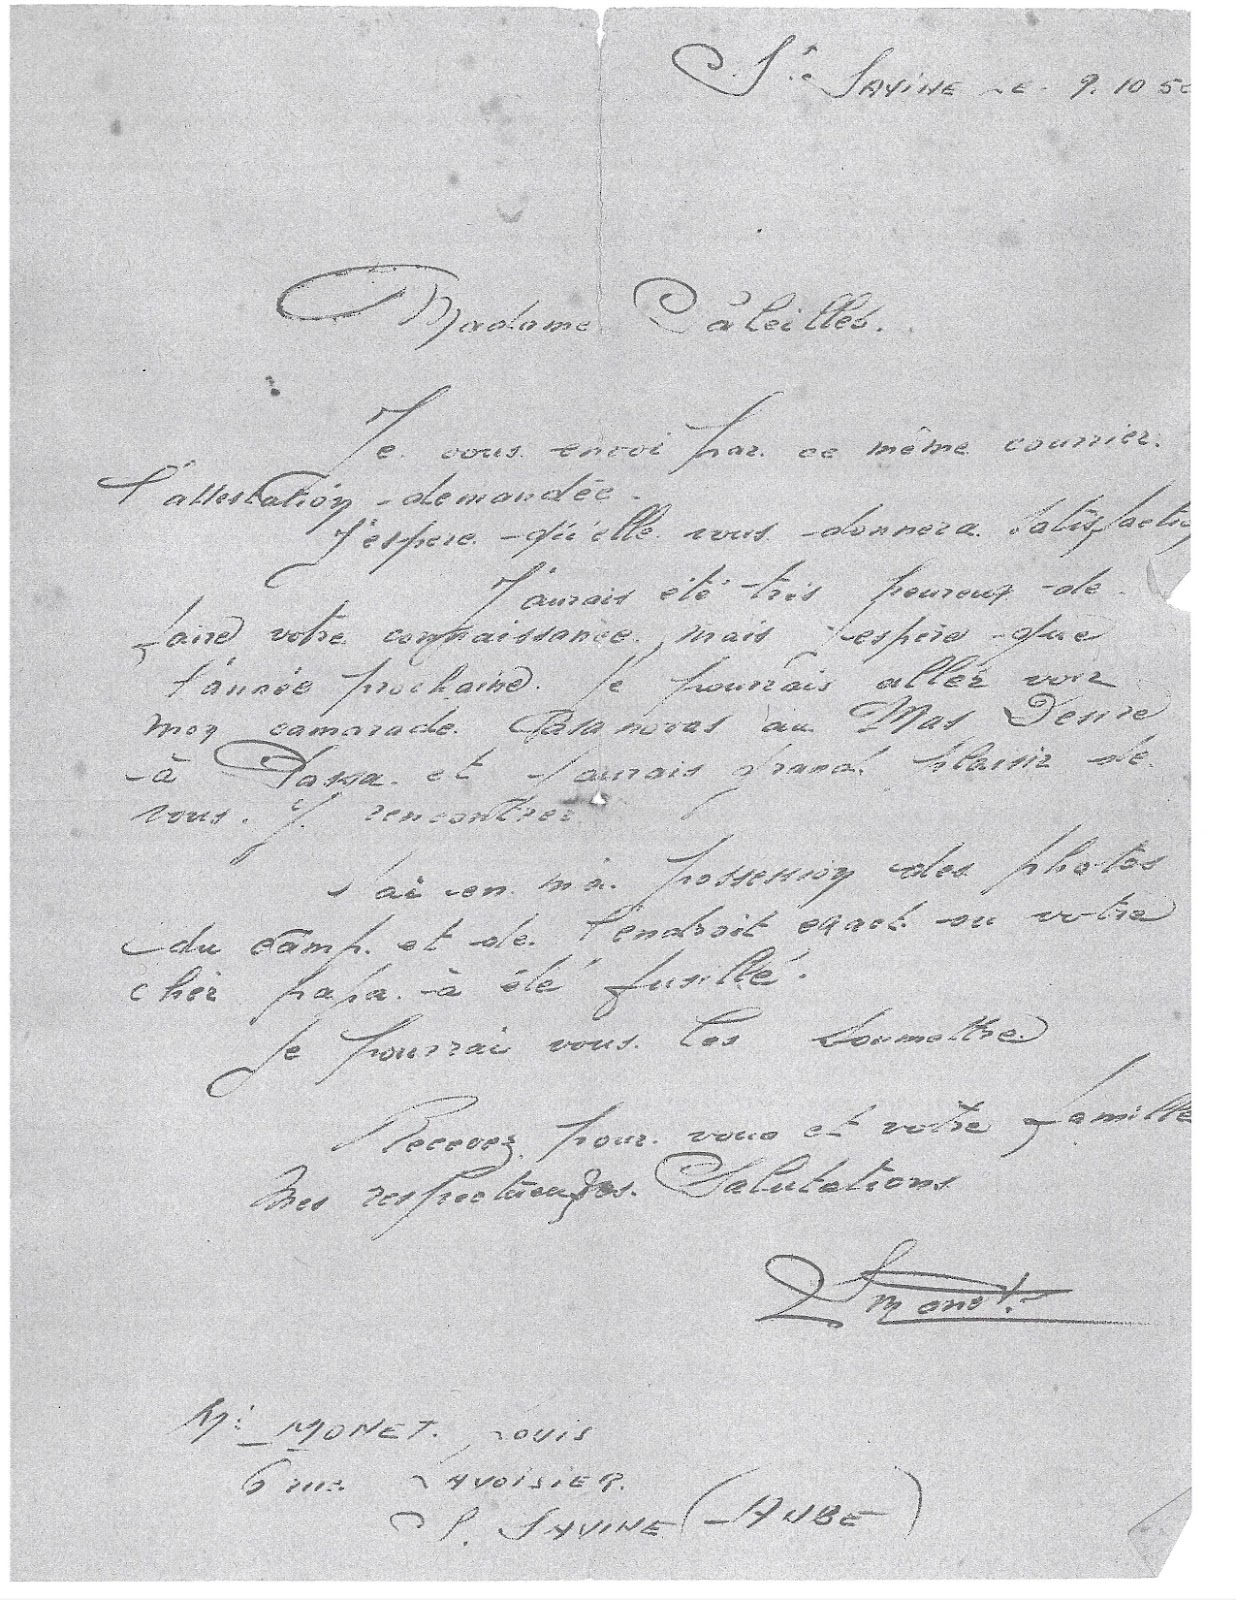 Ste SAVINE LE 9.10 5
Madame Paleilles.
Je vous envoi par ce même courrier.
l'attestation demandée.
J'espere qu'elle vous donnera satisfactio
J'aurais été très heureux de
faire votre connaissance, mais j'espère que
l'année prochaine. Je pourrais aller voir
mon camarade Casanovas au Mas Desire
à Passa et j'aurais grand plaisir de
vous. y rencontrer.
J'ai en ma possession des photos
du camp. et de l'endroit exact ou votre
cher papa à été fusillé.
Je pourrai vous les soumettre
Recevez pour vous et votre famille
Mes respectueuses Salutations
Monet
Mr MONET. Louis
6 rue LAVOISIER.
St. SAVINE (AUBE)